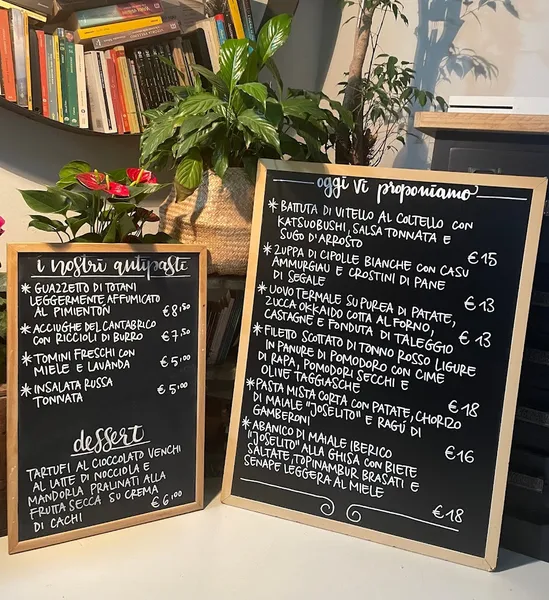 i nostri antipasti
* GUAZZETTO DI TOTANI
LEGGERMENTE AFFUMICATO
AL PIMIENTÓN €8,50
* ACCIUGHE DEL CANTABRICO
CON RICCIOLI DI BURRO €7,50
* TOMINI FRESCHI CON
MIELE E LAVANDA €5,00
* INSALATA RUSSA
TONNATA €5,00
dessert
TARTUFI AL CIOCCOLATO VENCHI
AL LATTE DI NOCCIOLA E
MANDORLA PRALINATI ALLA
FRUTTA SECCA SU CREMA
DI CACHI €6,00
oggi vi proponiamo
* BATTUTA DI VITELLO AL COLTELLO CON
KATSUOBUSHI, SALSA TONNATA E
SUGO D'ARROSTO €15
* ZUPPA DI CIPOLLE BIANCHE CON CASU
AMMURGIAU E CROSTINI DI PANE
DI SEGALE €13
* UOVO TERMALE SU PUREA DI PATATE,
ZUCCA OKKAIDO COTTA AL FORNO,
CASTAGNE E FONDUTA DI TALEGGIO €13
* FILETTO SCOTTATO DI TONNO ROSSO LIGURE
IN PANURE DI POMODORO CON CIME
DI RAPA, POMODORI SECCHI E
OLIVE TAGGIASCHE €18
* PASTA MISTA CORTA CON PATATE, CHORIZO
DI MAIALE "JOSELITO" E RAGÙ DI
GAMBERONI €16
* ABANICO DI MAIALE IBERICO
"JOSELITO" ALLA GHISA CON BIETE
SALTATE, TOPINAMBUR BRASATI E
SENAPE LEGGERA AL MIELE €18